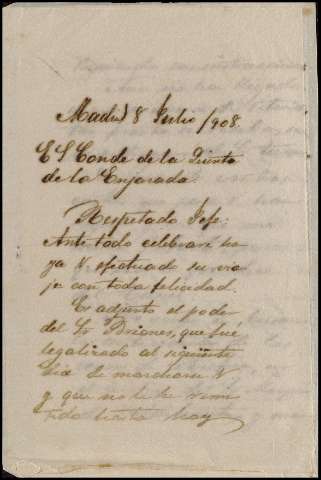 Madrid 8 Julio/908.
ES Conde de la Quinta
de la Enjarada.
Respetado Jefe:
Ante todo celebraré ha
ya V. efectuado su via
je con toda felicidad.
Es adjunto el poder
del Sr Briones, que fué
legalizado al siguiente
dia de marcharse V
y que no le he remi
tido hasta hoy